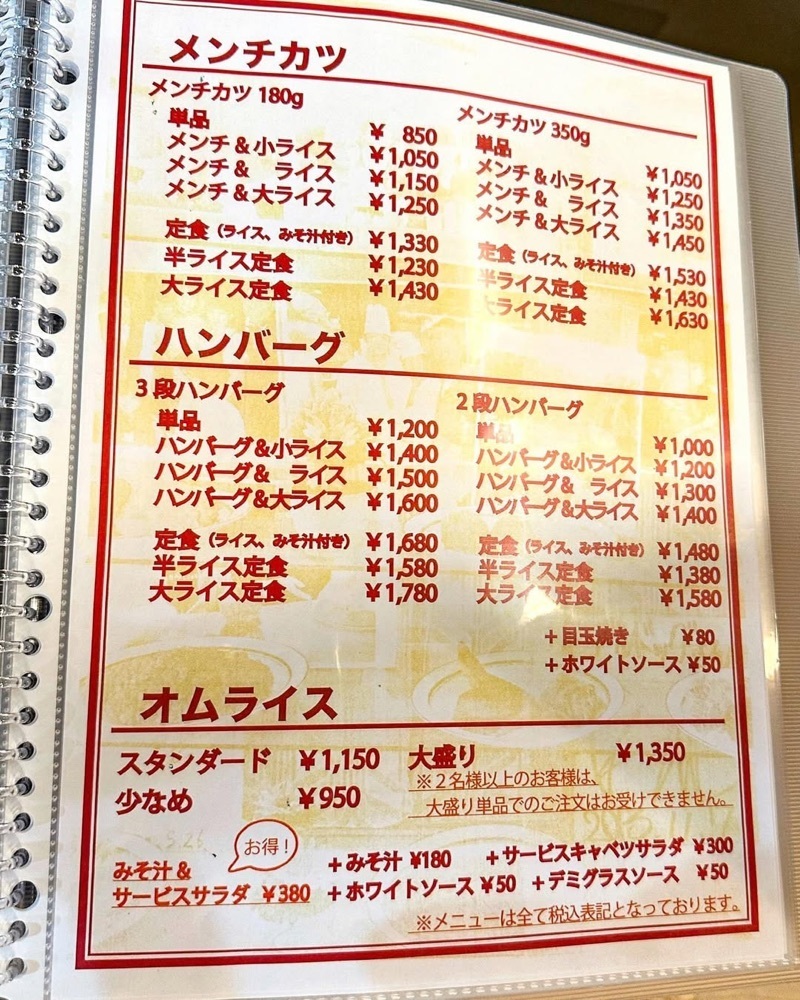 メンチカツ
メンチカツ 180g
単品 ¥ 850
メンチ＆小ライス ¥1,050
メンチ＆ ライス ¥1,150
メンチ＆大ライス ¥1,250
定食（ライス、みそ汁付き） ¥1,330
半ライス定食 ¥1,230
大ライス定食 ¥1,430
メンチカツ 350g
単品 ¥1,050
メンチ＆小ライス ¥1,250
メンチ＆ ライス ¥1,350
メンチ＆大ライス ¥1,450
定食（ライス、みそ汁付き） ¥1,530
半ライス定食 ¥1,430
大ライス定食 ¥1,630
ハンバーグ
3 段ハンバーグ
単品 ¥1,200
ハンバーグ＆小ライス ¥1,400
ハンバーグ＆ ライス ¥1,500
ハンバーグ＆大ライス ¥1,600
定食（ライス、みそ汁付き） ¥1,680
半ライス定食 ¥1,580
大ライス定食 ¥1,780
2 段ハンバーグ
単品 ¥1,000
ハンバーグ＆小ライス ¥1,200
ハンバーグ＆ ライス ¥1,300
ハンバーグ＆大ライス ¥1,400
定食（ライス、みそ汁付き） ¥1,480
半ライス定食 ¥1,380
大ライス定食 ¥1,580
＋目玉焼き ¥80
＋ホワイトソース ¥50
オムライス
スタンダード ¥1,150
少なめ ¥950
大盛り ¥1,350
※２名様以上のお客様は、
大盛り単品でのご注文はお受けできません。
お得！
みそ汁＆
サービスサラダ ¥380
＋みそ汁 ¥180 ＋サービスキャベツサラダ ¥300
＋ホワイトソース ¥50 ＋デミグラスソース ¥50
※メニューは全て税込表記となっております。